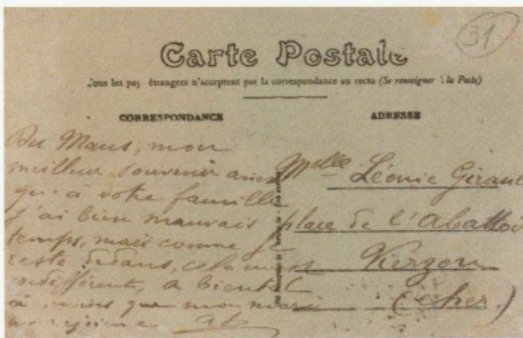 31
Carte Postale
Tous les pays étrangers n'acceptent pas la correspondance au recto (Se renseigner à la Poste)
CORRESPONDANCE
Du Mans, mon
meilleur souvenir ainsi
qu'à votre famille
j'ai bien mauvais
temps, mais comme je
reste dedans, cela m'est
indifférent, a bientôt
à moins que mon mari
ADRESSE
Melle Léonie Giraud
place de l'Abattoir
Vierzon
(Cher)